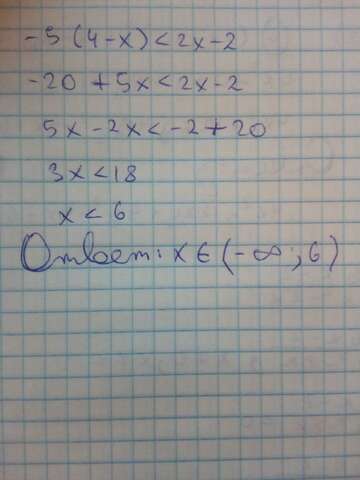 -5(4-x)<2x-2
-20+5x<2x-2
5x-2x<-2+20
3x<18
x<6
Ответ: x∈(-∞;6)